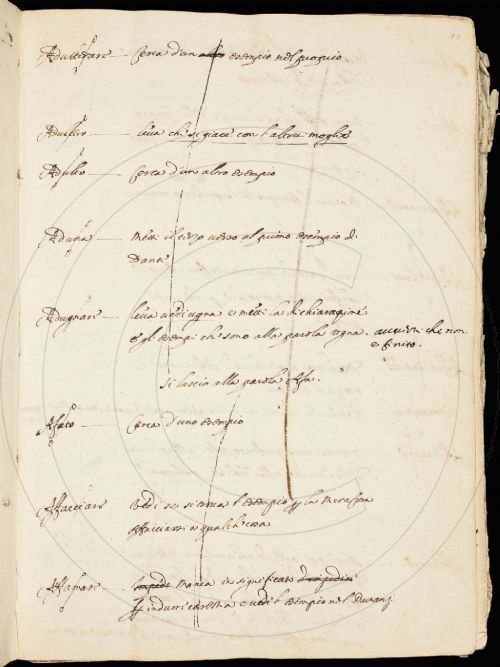 Adulterare — Cerca d'un altro esempio nel proprio.
Adultero — leva chi si giace con l'altrui moglie
Adulto — cerca d'un altro esempio
Aduna — metti il verso al primo esempio di
Dante
Adugnare — leva vedi ugna e metti la dichiarazione
e gl'esempi che sono alla parola ugna. avverti che non
è finito.
si lasciò alla parola Afa.
Afato — cerca d'uno esempio
Affacciare — vedi se si cerca l'esempio la
Affacciarsi a qualche cosa
Affamare — manca il significato
indurre carestia e vedi l'esempio